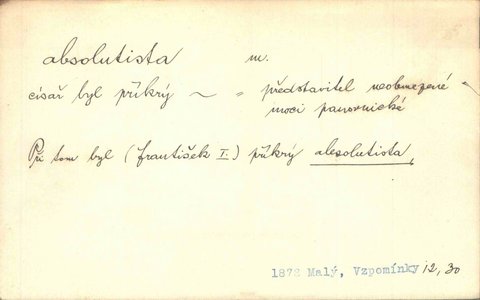 absolutista m.
císař byl příkrý ~ = představitel neobmezené
moci panovnické
Při tom byl (František I.) příkrý absolutista,
1872 Malý, Vzpomínky 12, 30